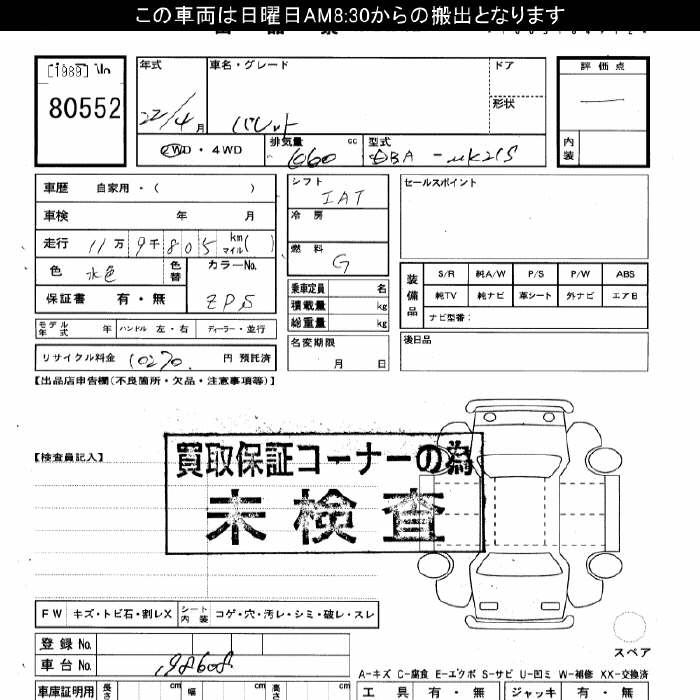 この車両は日曜日AM8:30からの搬出となります
[1989] No
80552
年式
22/4 月
車名・グレード
パレット
ドア
形状
評価点
—
内装
2WD・4WD
排気量
660 cc
型式
DBA-MK21S
車歴 自家用・( )
車検 年 月
走行 11万9千805 km マイル( )
色 水色 色替
カラーNo.
ZP5
保証書 有・無
モデル年式 年 ハンドル 左・右 ディーラー・並行
リサイクル料金 10270 円 預託済
シフト
IAT
冷房
燃料
G
乗車定員 名
積載量 kg
総重量 kg
名変期限
月 日
セールスポイント
装備品
S/R 純A/W P/S P/W ABS
純TV 純ナビ 革シート 外ナビ エアB
ナビ型番:
後日品
【出品店申告欄(不良箇所・欠品・注意事項等)】
【検査員記入】
買取保証コーナーの為
未検査
FW キズ・トビ石・割レX シート内装 コゲ・穴・汚レ・シミ・破レ・スレ
スペア
登録No.
車台No. 198608
A-キズ C-腐食 E-エクボ S-サビ U-凹ミ W-補修 XX-交換済
車庫証明用 長さ cm 幅 cm 高さ cm
工具 有・無 ジャッキ 有・無